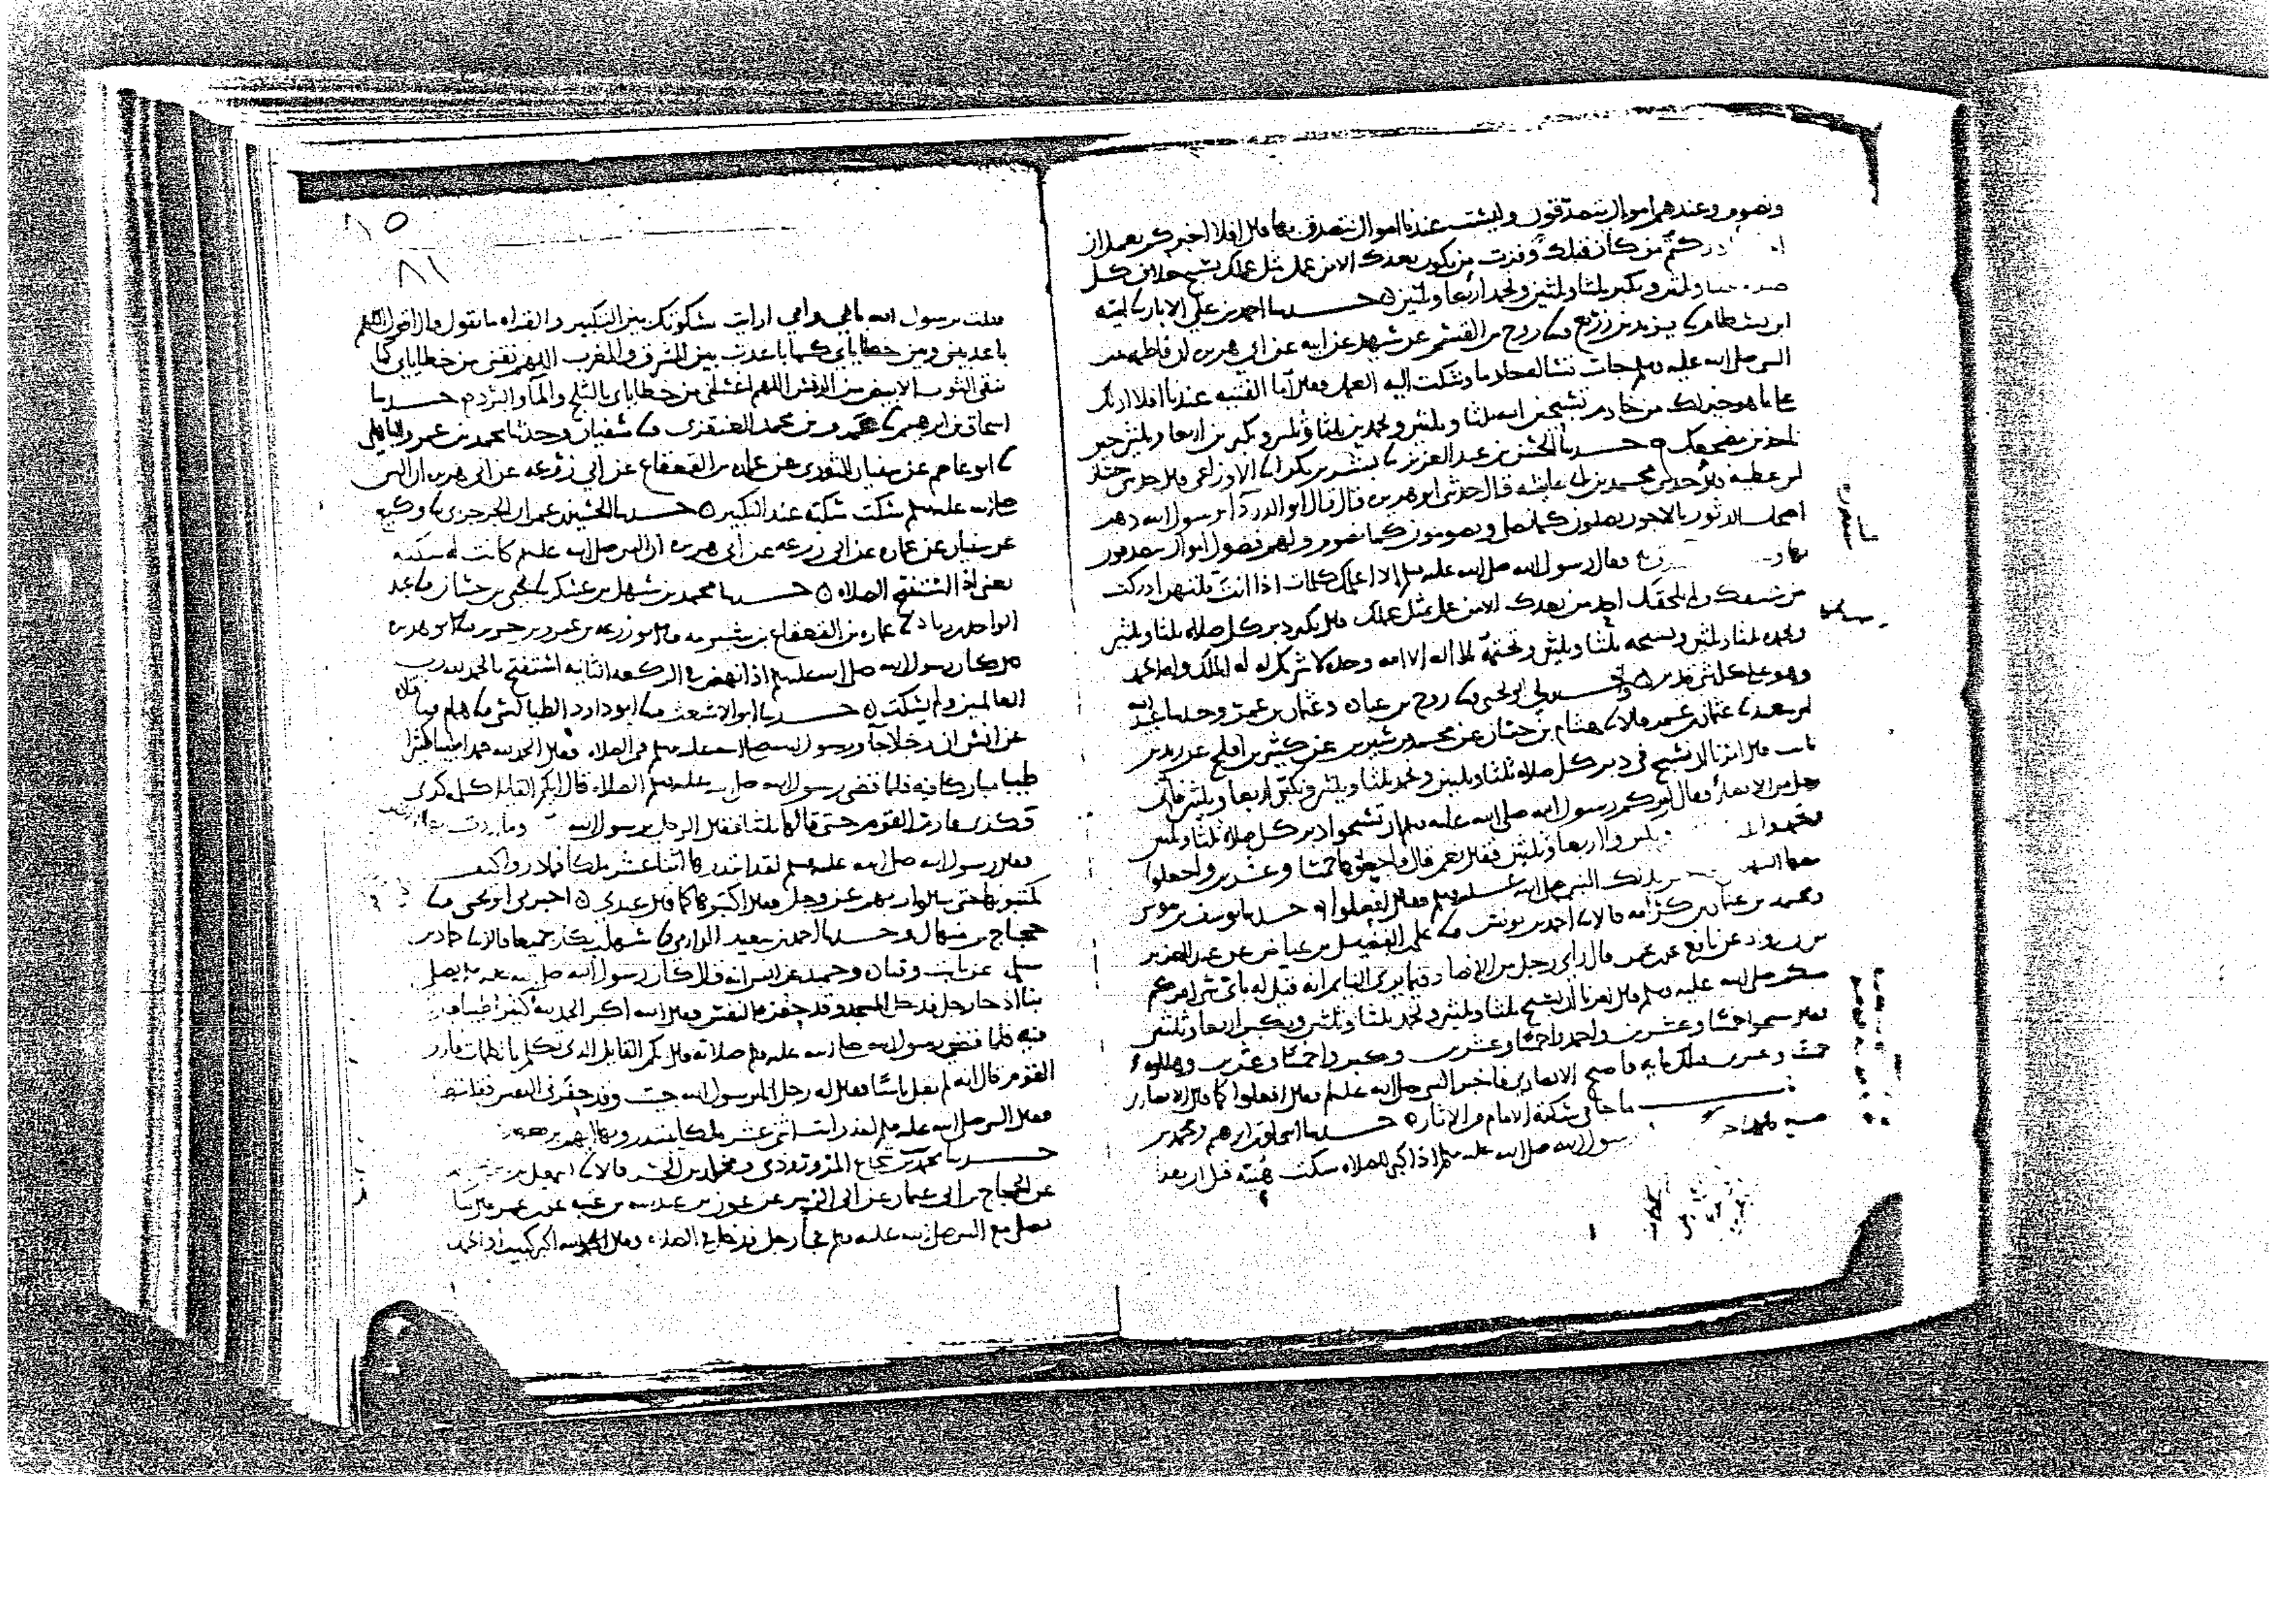 ونصوم وعندهم اموال يتصدقون وليست عندنا اموال نتصدق بها قال افلا اخبركم بعمل ان
ادركتم من كان قبلك وفزت من يكون بعدك الا من عمل مثل عملك تسبح خلف كل
ثلثا وثلثين وتكبر ثلثا وثلثين وتحمد اربعا وثلثين حدثنا احمد بن علي الابار نا امية
ابن بسطام نا يزيد بن زريع نا روح بن القسم عن سهيل عن ابيه عن ابي هريره ان فاطمه
النبي صلى الله عليه وسلم جات تساله خادما وشكت اليه العمل فقال ما الفيتيه عندنا افلا ادلك
على ما هو خير لك من خادم تسبحين الله ثلثا وثلثين وتحمدين ثلثا وثلثين وتكبرين اربعا وثلثين حين
تاخذين مضجعك حدثنا الحسن بن عبد العزيز نا بشر بن بكر نا الاوزاعي قال حدثني حسان
بن عطيه قال حدثني محمد بن ابي عايشه قال حدثني ابو هريره قال قال ابو الدردآ يرسول الله ذهب
اصحاب الدثور بالاجور يصلون كما نصلي ويصومون كما نصوم ولهم فضول اموال يتصدقون
بها فقال رسول الله صلى الله عليه وسلم الا اعلمك كلمات اذا انت قلتهن ادركت
من سبقك ولم يلحقك احد من بعدك الا من عمل مثل عملك قال تكبر دبر كل صلاه ثلثا وثلثين
وتحمده ثلثا وثلثين وتسبحه ثلثا وثلثين وتختمه بلا اله الا الله وحده لا شريك له له الملك وله الحمد
وهو على كل شي قدير ابو يحيى نا روح بن عباده وعثمان بن عمر وحدثنا عبد الله
بن سعيد نا عثمان بن عمر قالا نا هشام بن حسان عن محمد بن سيرين عن كثير بن افلح عن زيد بن
ثابت قال امرنا ان نسبح في دبر كل صلاه ثلثا وثلثين ونحمد ثلثا وثلثين ونكبر اربعا وثلثين فاتى
رجل من الانصار فقال امركم رسول الله صلى الله عليه وسلم ان تسبحوا دبر كل صلاه ثلثا وثلثين
وتحمدوا اربعا وثلثين فقال نعم قال فاجعلوها خمسا وعشرين واجعلوا
ذلك النبي صلى الله عليه وسلم فقال افعلوا حدثنا يوسف بن موسى
ومحمد بن عثمان بن كرامه قالا نا احمد بن يونس نا علي الفضيل بن عياض عن عبد العزيز
بن رواد عن نافع عن ابن عمر قال راى رجل من الانصار فيما يرى النايم انه قيل له باي شي امركم
نبيكم صلى الله عليه وسلم قال امرنا ان نسبح ثلثا وثلثين ونحمد ثلثا وثلثين ونكبر اربعا وثلثين
فقال سبحوا خمسا وعشرين واحمدوا خمسا وعشرين وكبروا خمسا وعشرين وهللوا
خمسا وعشرين فتلك مايه فاصبح الانصاري فاخبر النبي صلى الله عليه وسلم فقال افعلوا كما قال الانصاري
ما جا في سكتة الامام من الاثار حدثنا اسحاق بن ابرهيم ومحمد بن
رسول الله صلى الله عليه وسلم اذا كبر للصلاه سكت هنيهة قبل ان يقرا
١٥
٨١
فقلت يرسول الله بابي وامي ارايت سكوتك بين التكبير والقراه ما تقول قال اقول اللهم
باعد بيني وبين خطاياي كما باعدت بين المشرق والمغرب اللهم نقني من خطاياي كما
ينقى الثوب الابيض من الدنس اللهم اغسلني من خطاياي بالثلج والمآ والبرد حدثنا
اسحاق بن ابرهيم نا عمرو بن محمد العنقزي نا سفيان وحدثنا محمد بن عمرو الباهلي
نا ابو عاصم عن سفيان الثوري عن عماره بن القعقاع عن ابي زرعه عن ابي هريره ان النبي
صلى الله عليه وسلم سكت سكته عند التكبير حدثنا الحسين بن عمران الجرجري نا وكيع
عن سفيان عن عماره عن ابي زرعه عن ابي هريره ان النبي صلى الله عليه وسلم كانت له سكته
يعني اذا استفتح الصلاه حدثنا محمد بن سهل بن عسكر نا يحيى بن حسان نا عبد
الواحد بن زياد نا عماره بن القعقاع بن شبرمه نا ابو زرعه بن عمرو بن جرير نا ابو هريره
قال كان رسول الله صلى الله عليه وسلم اذا نهض في الركعه الثانيه استفتح بالحمد لله رب
العالمين ولم يسكت حدثنا ابو الاشعث نا ابو داود الطيالسي نا همام نا قتاده
عن انس ان رجلا جآ ورسول الله صلى الله عليه وسلم في الصلاه فقال الحمد لله حمدا كثيرا
طيبا مباركا فيه فلما قضى رسول الله صلى الله عليه وسلم الصلاه قال ايكم القايل كلمه كذى
وكذى فارم القوم حتى قالها ثلثا فقال الرجل يرسول الله وما اردت
فقال رسول الله صلى الله عليه وسلم لقد ابتدرها اثنا عشر ملكا فما دروا كيف
يكتبونها حتى سالوا ربهم عز وجل فقال اكتبوها كما قال عبدي اخبرني ابو يحيى نا
حجاج بن منهال وحدثنا احمد بن سعيد الدارمي نا سهل بن بكار جميعا قالا نا حماد بن
سلمه عن ثابت وقتاده وحميد عن انس انه قال كان رسول الله صلى الله عليه وسلم يصلي
بنا اذ جا رجل فدخل المسجد وقد حفزه النفس فقال الله اكبر الحمد لله كثيرا طيبا مباركا
فيه فلما قضى رسول الله صلى الله عليه وسلم صلاته قال ايكم القايل الذي تكلم بالكلمات فارم
القوم قال انه لم يقل باسا فقال له رجل انا يرسول الله جيت وقد حفزني النفس فقلتها
فقال النبي صلى الله عليه وسلم لقد رايت اثني عشر ملكا يبتدرونها ايهم يرفعها
حدثنا محمد بن شجاع المروروذي قالا نا اسمعيل بن
عن الحجاج بن ابي عثمان عن ابي الزبير عن عون بن عبد الله بن عتبه عن ابن عمر قال بينا
نصلي مع النبي صلى الله عليه وسلم فجآ رجل فدخل في الصلاه وقال الله اكبر كبيرا والحمد